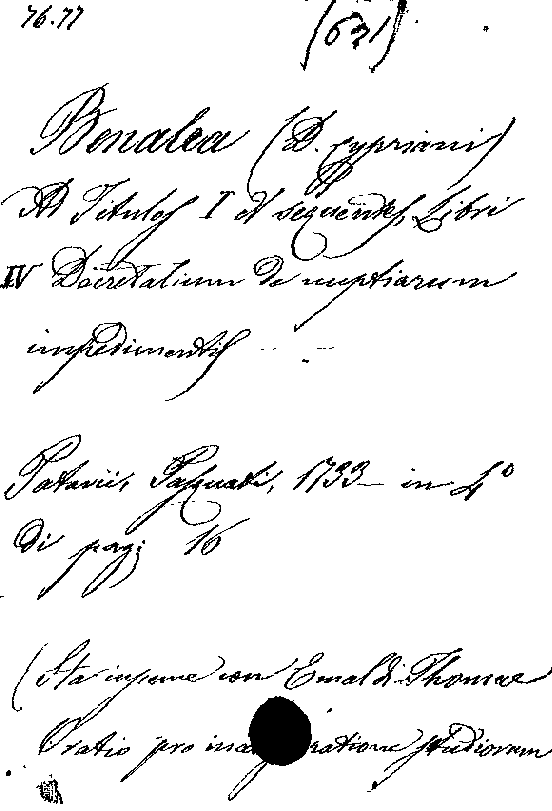 76.77
(631)
Benalea (D. Cypriani)
Ad Titulos I et sequentes Libri
IV Decretalium de nuptiarum
impedimentis
Patavii, Pasquati, 1733 - in 4º
di pag; 16
(Sta insieme con Emaldi Thomae
Oratio pro inauguratione studiorum